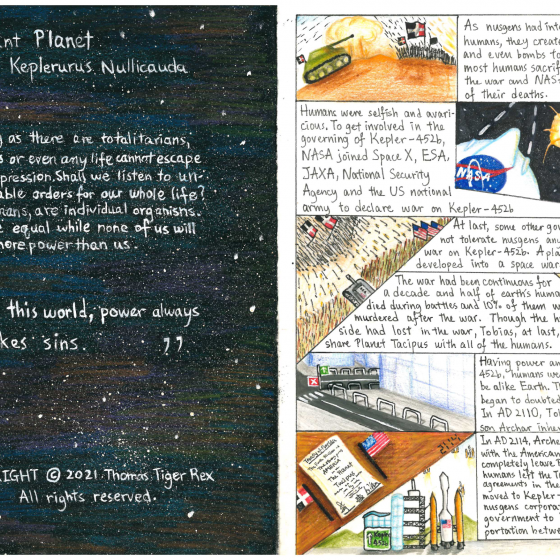 nt Planet
Keplerurus Nullicauda
as there are totalitarians,
or even any life cannot escape
pression. Shall we listen to un-
able orders for our whole life?
mans, are individual organisms.
e equal while none of us will
more power than us.
this world, power always
kes sins.
”
IGHT © 2021 Thomas Tiger Rex
All rights reserved.
As nusgens had int
humans, they create
and even bombs to
most humans sacrif
the war and NAS
of their deaths.
Humans were selfish and avari-
cious. To get involved in the
governing of Kepler-452b,
NASA joined Space X, ESA,
JAXA, National Security
Agency and the US national
army to declare war on Kepler-452b
NASA
At last, some other gov
not tolerate nusgens any
war on Kepler-452b. A pla
developed into a space war
The war had been continuous for
a decade and half of earth's human
died during battles and 10% of them w
murdered after the war. Though the h
side had lost in the war, Tobias, at last,
share Planet Tacipus with all of the humans.
Having power an
452b, humans we
be alike Earth. T
began to doubted
In AD 2110, Tob
son Archar inher
In AD 2114, Arche
with the American
completely leave t
humans left the T
agreements in the
moved to Kepler-
nusgens corporat
government to
portation betwe
The Planet
Tacipus
Kepler
452b